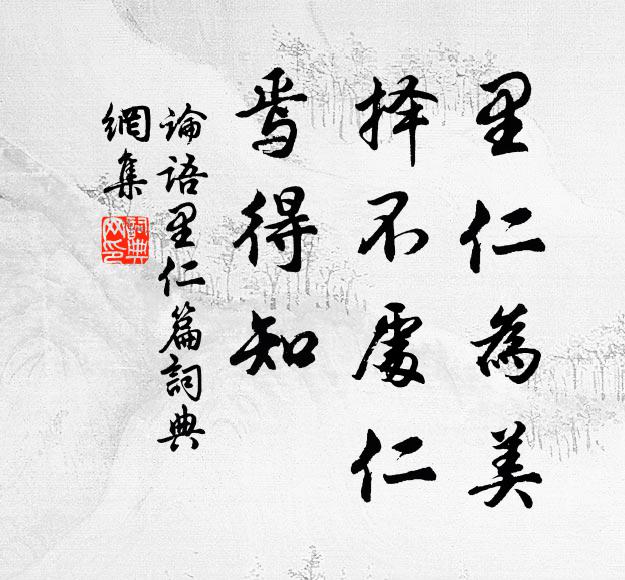 里仁為美
择不處仁
焉得知
论语里仁篇詞典
網集
詞典
网印